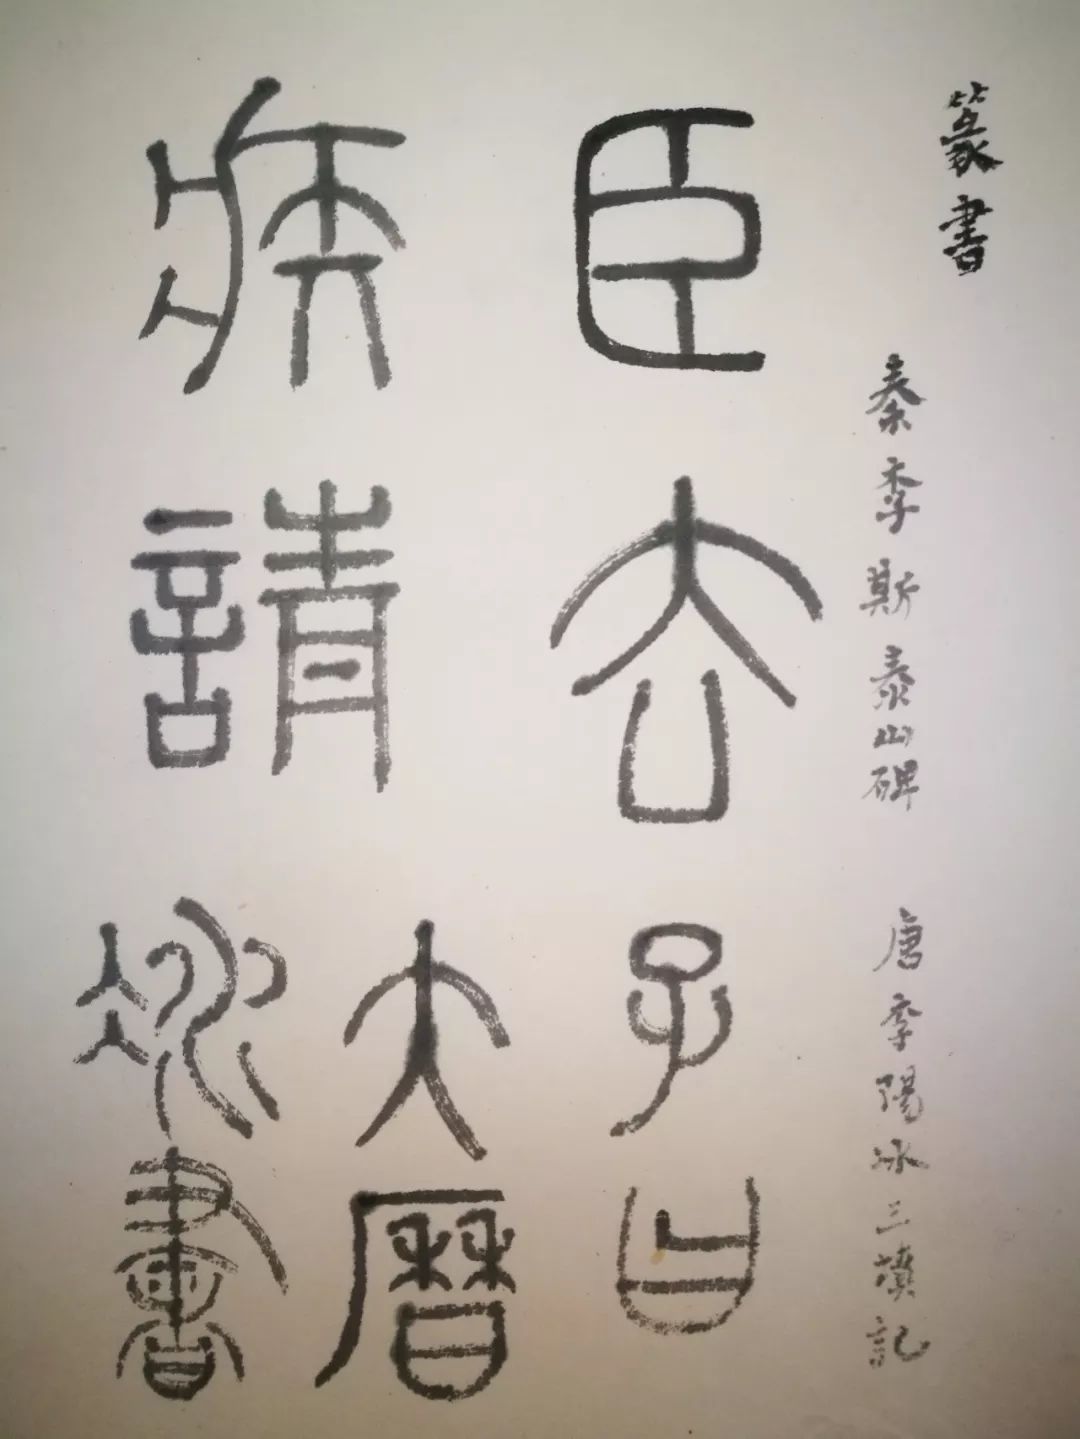 篆書
秦李斯泰山碑
臣去
疾請
唐李陽冰三墳記
子曰
大曆
冰書